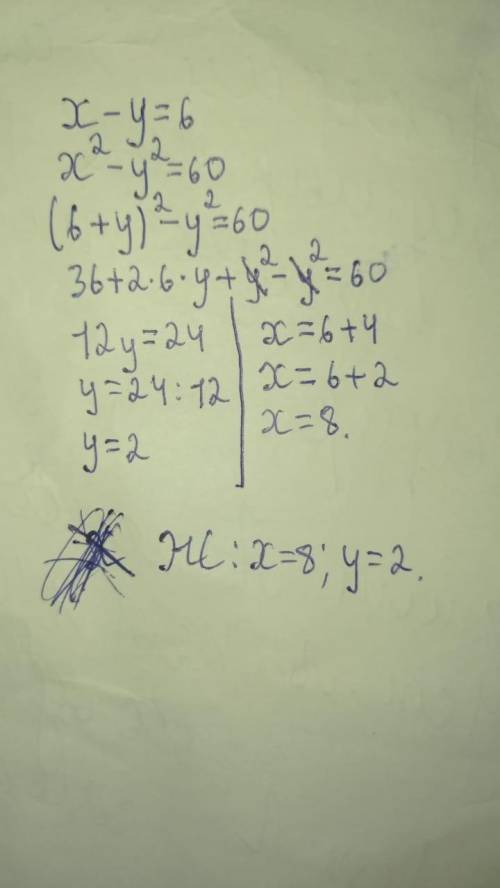 x - y = 6
x² - y² = 60
(6 + y)² - y² = 60
36 + 2 · 6 · y + y² - y² = 60
12y = 24
y = 24 : 12
y = 2
x = 6 + y
x = 6 + 2
x = 8.
Ж: x = 8; y = 2.